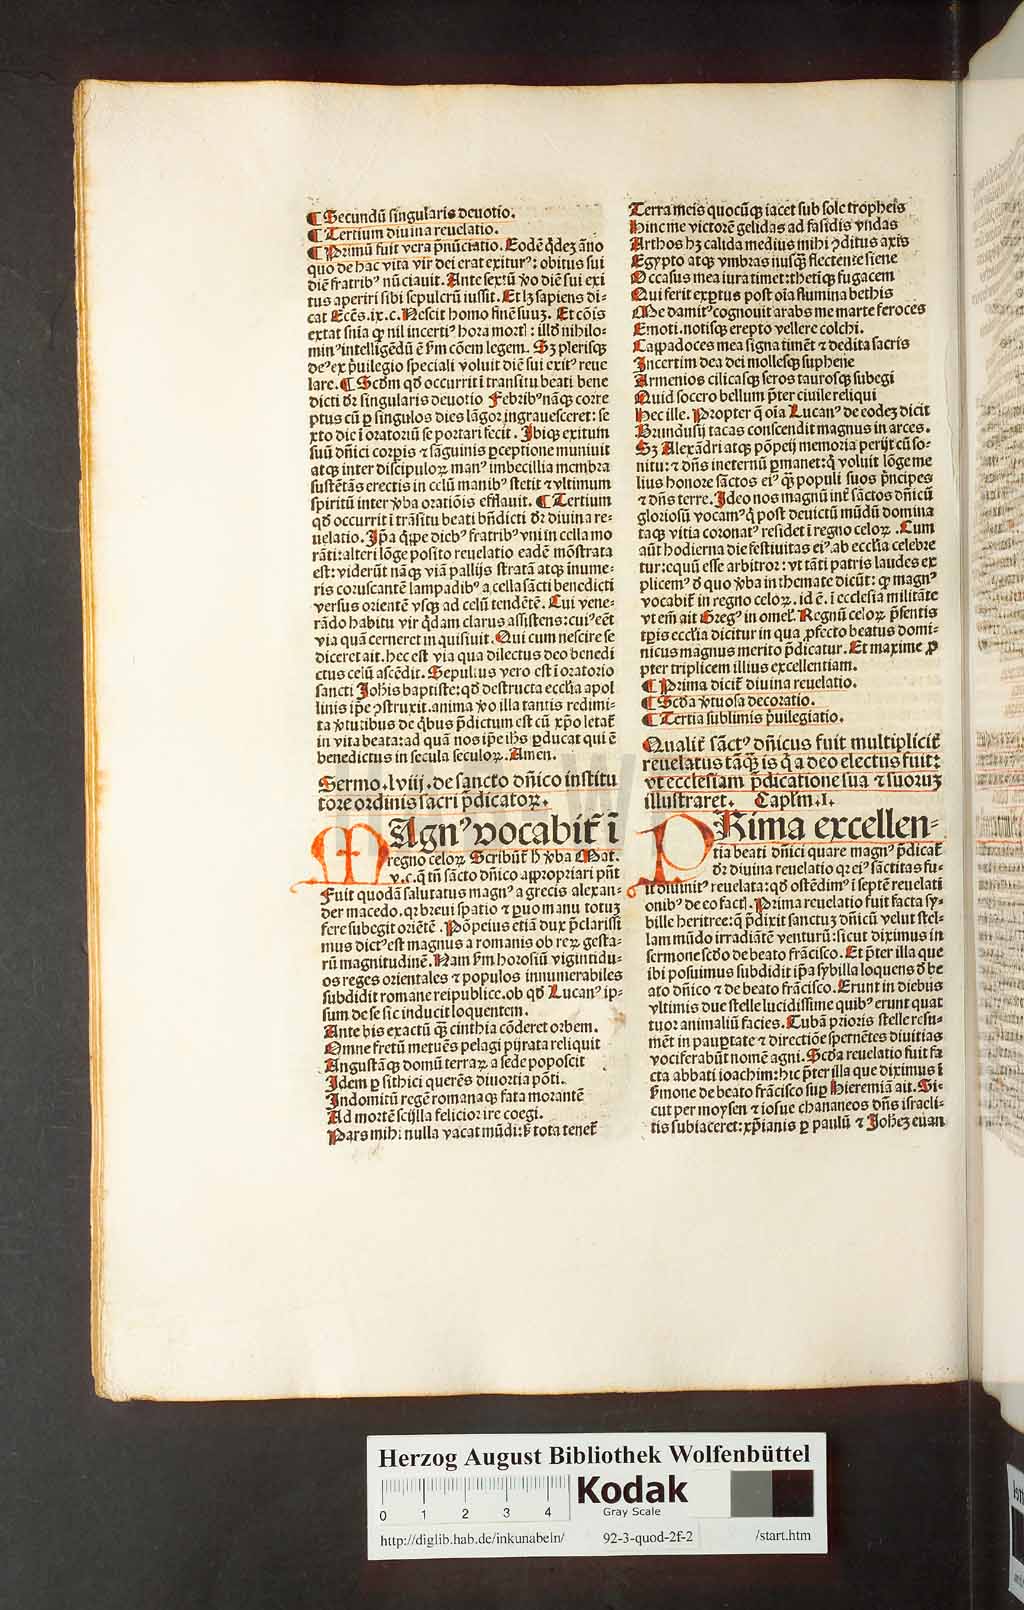 ¶ Secundū singularis deuotio.
¶ Tertium diuina reuelatio.
¶ Primū fuit vera p̄nūciatio. Eodē q̄dez āno
quo de hac vita vir dei erat exiturꝰ: obitus sui
diē fratribꝰ nūciauit. Ante sextū ꝟo diē sui exi
tus aperiri sibi sepulcrū iussit. Et lꝫ sapiens di⸗
cat Ecēs.ix.c. Nescit homo finē suuꝫ. Et cōis
extat sn̄ia ꝙ nil incertiꝰ hora mortꝭ: illd̄ nihilo⸗
minꝰ intelligēdū ē ẜm cōem legem. Sꝫ plerisqꝫ
deꝰ ex p̄uilegio speciali voluit diē sui exitꝰ reue
lare. ¶ Scd̄m qd̄ occurrit ī transitu beati bene
dicti dr̄ singularis deuotio Febribꝰ nāqꝫ corre
ptus cū ꝑ singulos dies lāgor ingrauesceret: se
xto die ī oratoriū se portari fecit. Ibiqꝫ exitum
suū dn̄ici corpis ⁊ sāguinis ꝑceptione muniuit
atqꝫ inter discipuloꝝ manꝰ imbecillia membra
sustētās erectis in celū manibꝰ stetit ⁊ vltimum
spiritū inter ꝟba oratiōis efflauit. ¶ Tertium
qd̄ occurrit ī trāsitu beati bn̄dicti dr̄ diuina re⸗
uelatio. Ip̄a q̄ppe diebꝰ fratribꝰ vni in cella mo
rāti: alteri lōge posito reuelatio eadē mōstrata
est: viderūt nāqꝫ viā pallijs stratā atqꝫ inume⸗
ris coruscantē lampadibꝰ a cella sācti benedicti
versus orientē vsqꝫ ad celū tendētē. Cui vene⸗
rādo habitu vir q̄dam clarus assistens: cuiꝰ eēt
via quā cerneret inquisiuit. Qui cum nescire se
diceret ait. hec est via qua dilectus deo benedi
ctus celū ascēdit. Sepultus vero est ī oratorio
sancti Joh̄is baptiste: qd̄ destructa eccl̄ia apol
linis ip̄e ꝯstruxit. anima ꝟo illa tantis redimi⸗
ta ꝟtutibus de q̄bus p̄dictum est cū xp̄o letat̄
in vita beata: ad quā nos ip̄e ihs ꝑducat qui ē
benedictus in secula seculoꝝ. Amen.
Sermo.lviij. de sancto dn̄ico institu
tore ordinis sacri p̄dicatoꝝ.
MAgnꝰ vocabit̄ ī
regno celoꝝ Scribūt̄ h̄ ꝟba Mat.
v.c. q̄ tn̄ sācto dn̄ico appropriari pn̄t
Fuit quodā salutatus magnꝰ a grecis alexan⸗
der macedo. qr breui sp̄atio ⁊ ꝑ uo manu totuꝫ
fere subegit oriētē. Pōpeius etiā dux p̄clarissi
mus dictꝰ est magnus a romanis ob reꝝ gesta⸗
rū magnitudinē. Nam ẜm horosiū vigintidu⸗
os reges orientales ⁊ populos innumerabiles
subdidit romane reipublice. ob qd̄ Lucanꝰ ip⸗
sum de se sic inducit loquentem.
Ante bis exactū q̄ꝫ cinthia cōderet orbem.
Omne fretū metuēs pelagi pirata reliquit
Angustāqꝫ domū terraꝝ a sede poposcit
Idem ꝑ sithici querēs diuortia pōti.
Indomitū regē romanaqꝫ fata morantē
Ad mortē scylla felicior ire coegi.
Pars mihi nulla vacat mūdi: ẜ tota tenet̄
Terra meis quocūqꝫ iacet sub sole tropheis
Hinc me victorē gelidas ad fasidis vndas
Arthos hꝫ calida medius mihi ꝯditus axis
Egypto atqꝫ vmbras nusq̄ꝫ flectente siene
Occasus mea iura timet: thetiqꝫ fugacem
Qui ferit exꝑtus post oīa flumina bethis
Me damitꝰ cognouit arabs me marte feroces
Emoti. notisqꝫ erepto vellere colchi.
Cappadoces mea signa timēt ⁊ dedita sacris
Incertim dea dei mollesqꝫ suphene
Armenios cilicasqꝫ feros taurosqꝫ subegi
Quid socero bellum p̄ter ciuile reliqui
Hec ille. Propter q̄ oīa Lucanꝰ de eodeꝫ dicit
Brundusij tacas conscendit magnus in arces.
Sꝫ Alexādri atqꝫ pōpeij memoria perijt cū so⸗
nitu: ⁊ dn̄s ineternū ꝑmanet: q̇ voluit lōge me
lius honore sāctos eiꝰ q̄ꝫ populi suos p̄ncipes
⁊ dn̄s terre. Ideo nos magnū int̄ sāctos dn̄icū
gloriosū vocamꝰ q̇ post deuictū mūdū domina
taqꝫ vitia coronatꝰ residet ī regno celoꝝ. Cum
aūt hodierna die festiuitas eiꝰ. ab eccl̄ia celebre
tur: equū esse arbitror: vt tāti patris laudes ex
plicem ꝰ d̄ quo ꝟba in themate dicūt: ꝙ magnꝰ
vocabit̄ in regno celoꝝ. id ē. ī ecclesia militāte
vt em̄ ait Gregꝰ in omel̄. Regnū celoꝝ p̄sentis
tp̄is eccl̄ia dicitur in qua ꝓfecto beatus domi⸗
nicus magnus merito p̄dicatur. Et maxime ꝓ
pter triplicem illius excellentiam.
¶ Prima dicit̄ diuina reuelatio.
¶ Scd̄a ꝟtuosa decoratio.
¶ Tertia sublimis p̄uilegiatio.
Qualit̄ sāctꝰ dn̄icus fuit multiplicit̄
reuelatus tāq̄ꝫ is q̇ a deo electus fuit:
vt ecclesiam p̄dicatione sua ⁊ suoruꝫ
illustraret. Caplm̄.I.
PRima excellen⸗
tia beati dn̄ici quare magnꝰ p̄dicat̄
dr̄ diuina reuelatio qr eiꝰ sāctitas fu⸗
it diuinitꝰ reuelata: qd̄ ostēdimꝰ ī septē reuelati
onibꝰ de eo factꝭ. Prima reuelatio fuit facta sy⸗
bille heritree: q̄ p̄dixit sanctuꝫ dn̄icū velut stel⸗
lam mūdo irradiātē venturū: sicut diximus in
sermone scd̄o de beato frācisco. Et p̄ter illa que
ibi posuimus subdidit ip̄a sybilla loquens d̄ be
ato dn̄ico ⁊ de beato frācisco. Erunt in diebus
vltimis due stelle lucidissime quibꝰ erunt quat
tuor animaliū facies. Tubā prioris stelle resu⸗
mēt in pauꝑtate ⁊ directiōe spernētes diuitias
vociferabūt nomē agni. Scd̄a reuelatio fuit fa
cta abbati ioachim: hic p̄ter illa que diximus ī
ẜmone de beato frācisco suꝑ Hieremiā ait. Si⸗
cut per moysen ⁊ iosue chananeos dn̄s israeli⸗
tis subiaceret: xp̄ianis ꝑ paulū ⁊ Joh̄eꝫ euan
Herzog August Bibliothek Wolfenbüttel
0 1 2 3 4
Kodak
Gray Scale
http://diglib.hab.de/inkunabeln/ 92-3-quod-2f-2 /start.htm